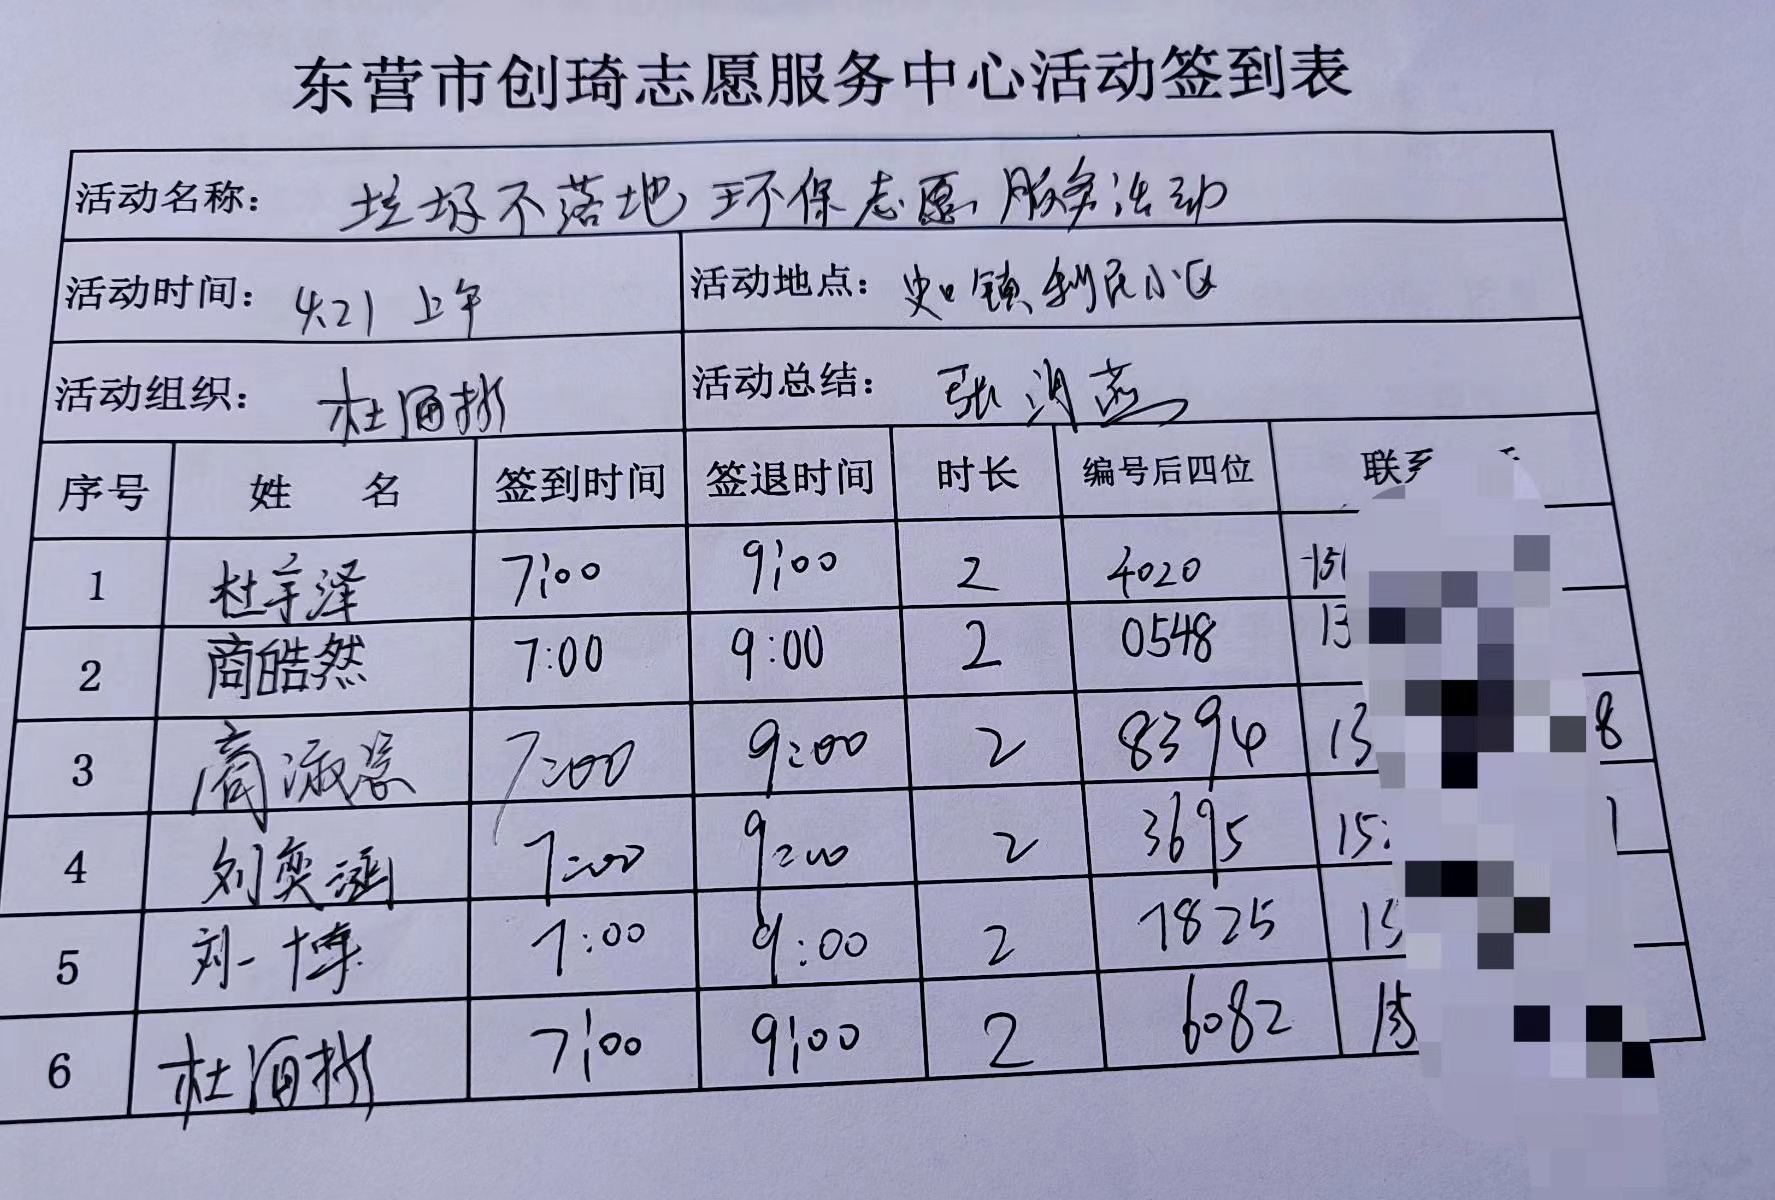 东营市创琦志愿服务中心活动签到表
活动名称： 垃圾不落地 环保志愿服务活动
活动时间： 4.21 上午 活动地点： 史口镇利民小区
活动组织： 杜酒彬 活动总结： 张润燕
序号 姓 名 签到时间 签退时间 时长 编号后四位 联系
1 杜宇泽 7:00 9:00 2 4020 151
2 商皓然 7:00 9:00 2 0548 13
3 商淑 7:00 9:00 2 8394 13 8
4 刘奕涵 7:00 9:00 2 3695 15 1
5 刘一博 7:00 9:00 2 7825 15
6 杜酒彬 7:00 9:00 2 6082 135